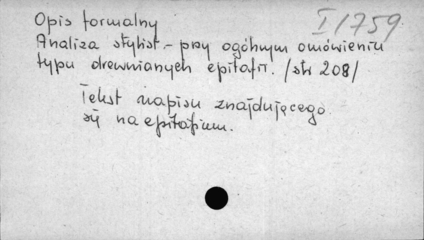 Opis formalny
I/759
Analiza stylist. - przy ogólnym omówieniu
typu drewnianych epitafii. /str 208/
Tekst napisu znajdującego
się na epitafium.